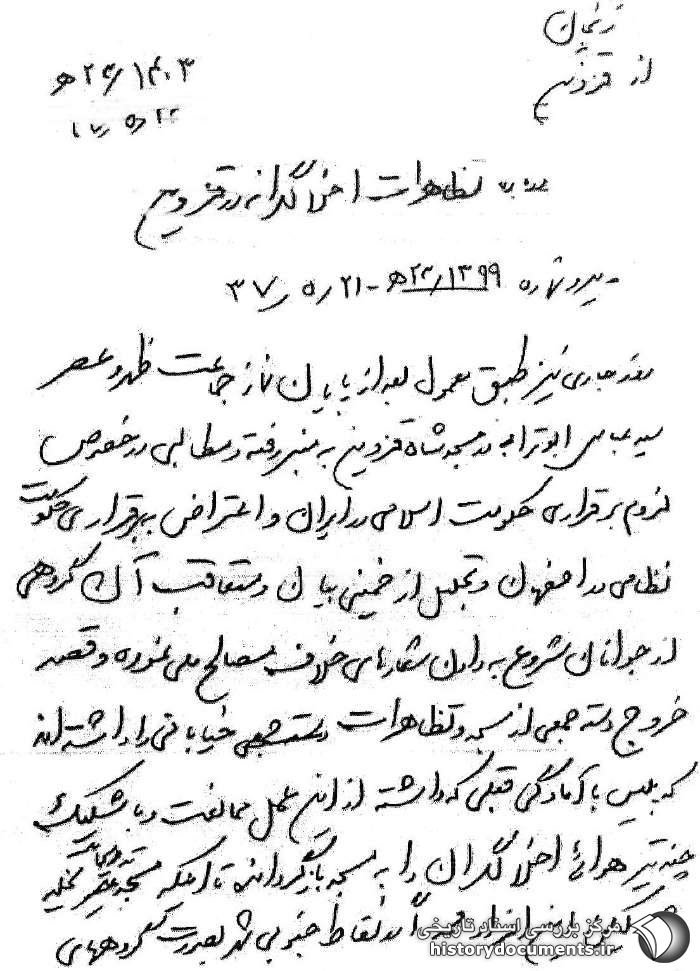 زنجان
از قزوین
۲۴/۱۴۰۳ه
درباره تظاهرات اخلالگرانه در قزوین
پیرو شماره ۲۴/۱۳۹۹ه - ۲۱/۵/۳۷
روز جاری نیز طبق معمول بعد از پایان نماز جماعت ظهر و عصر
سید عباس ابوترابی در مسجد شاه قزوین به منبر رفته و مطالبی در خصوص
لزوم برقراری حکومت اسلامی در ایران و اعتراض به برقراری حکومت
نظامی در اصفهان و تجلیل از خمینی بیان و متعاقب آن گروهی
از جوانان شروع به دادن شعارهای خلاف مصالح ملی نموده و قصد
خروج دسته جمعی از مسجد و تظاهرات دسته جمعی خیابانی را داشته‌اند
که پلیس با آمادگی قبلی که داشته از این عمل ممانعت و با شلیک
چند تیر هوائی اخلالگران را به مسجد بازگردانده تا اینکه مسجد تخلیه
لیکن این افراد در نقاط جنوبی شهر بصورت گروههای
مرکز بررسی اسناد تاریخی
historydocuments.ir